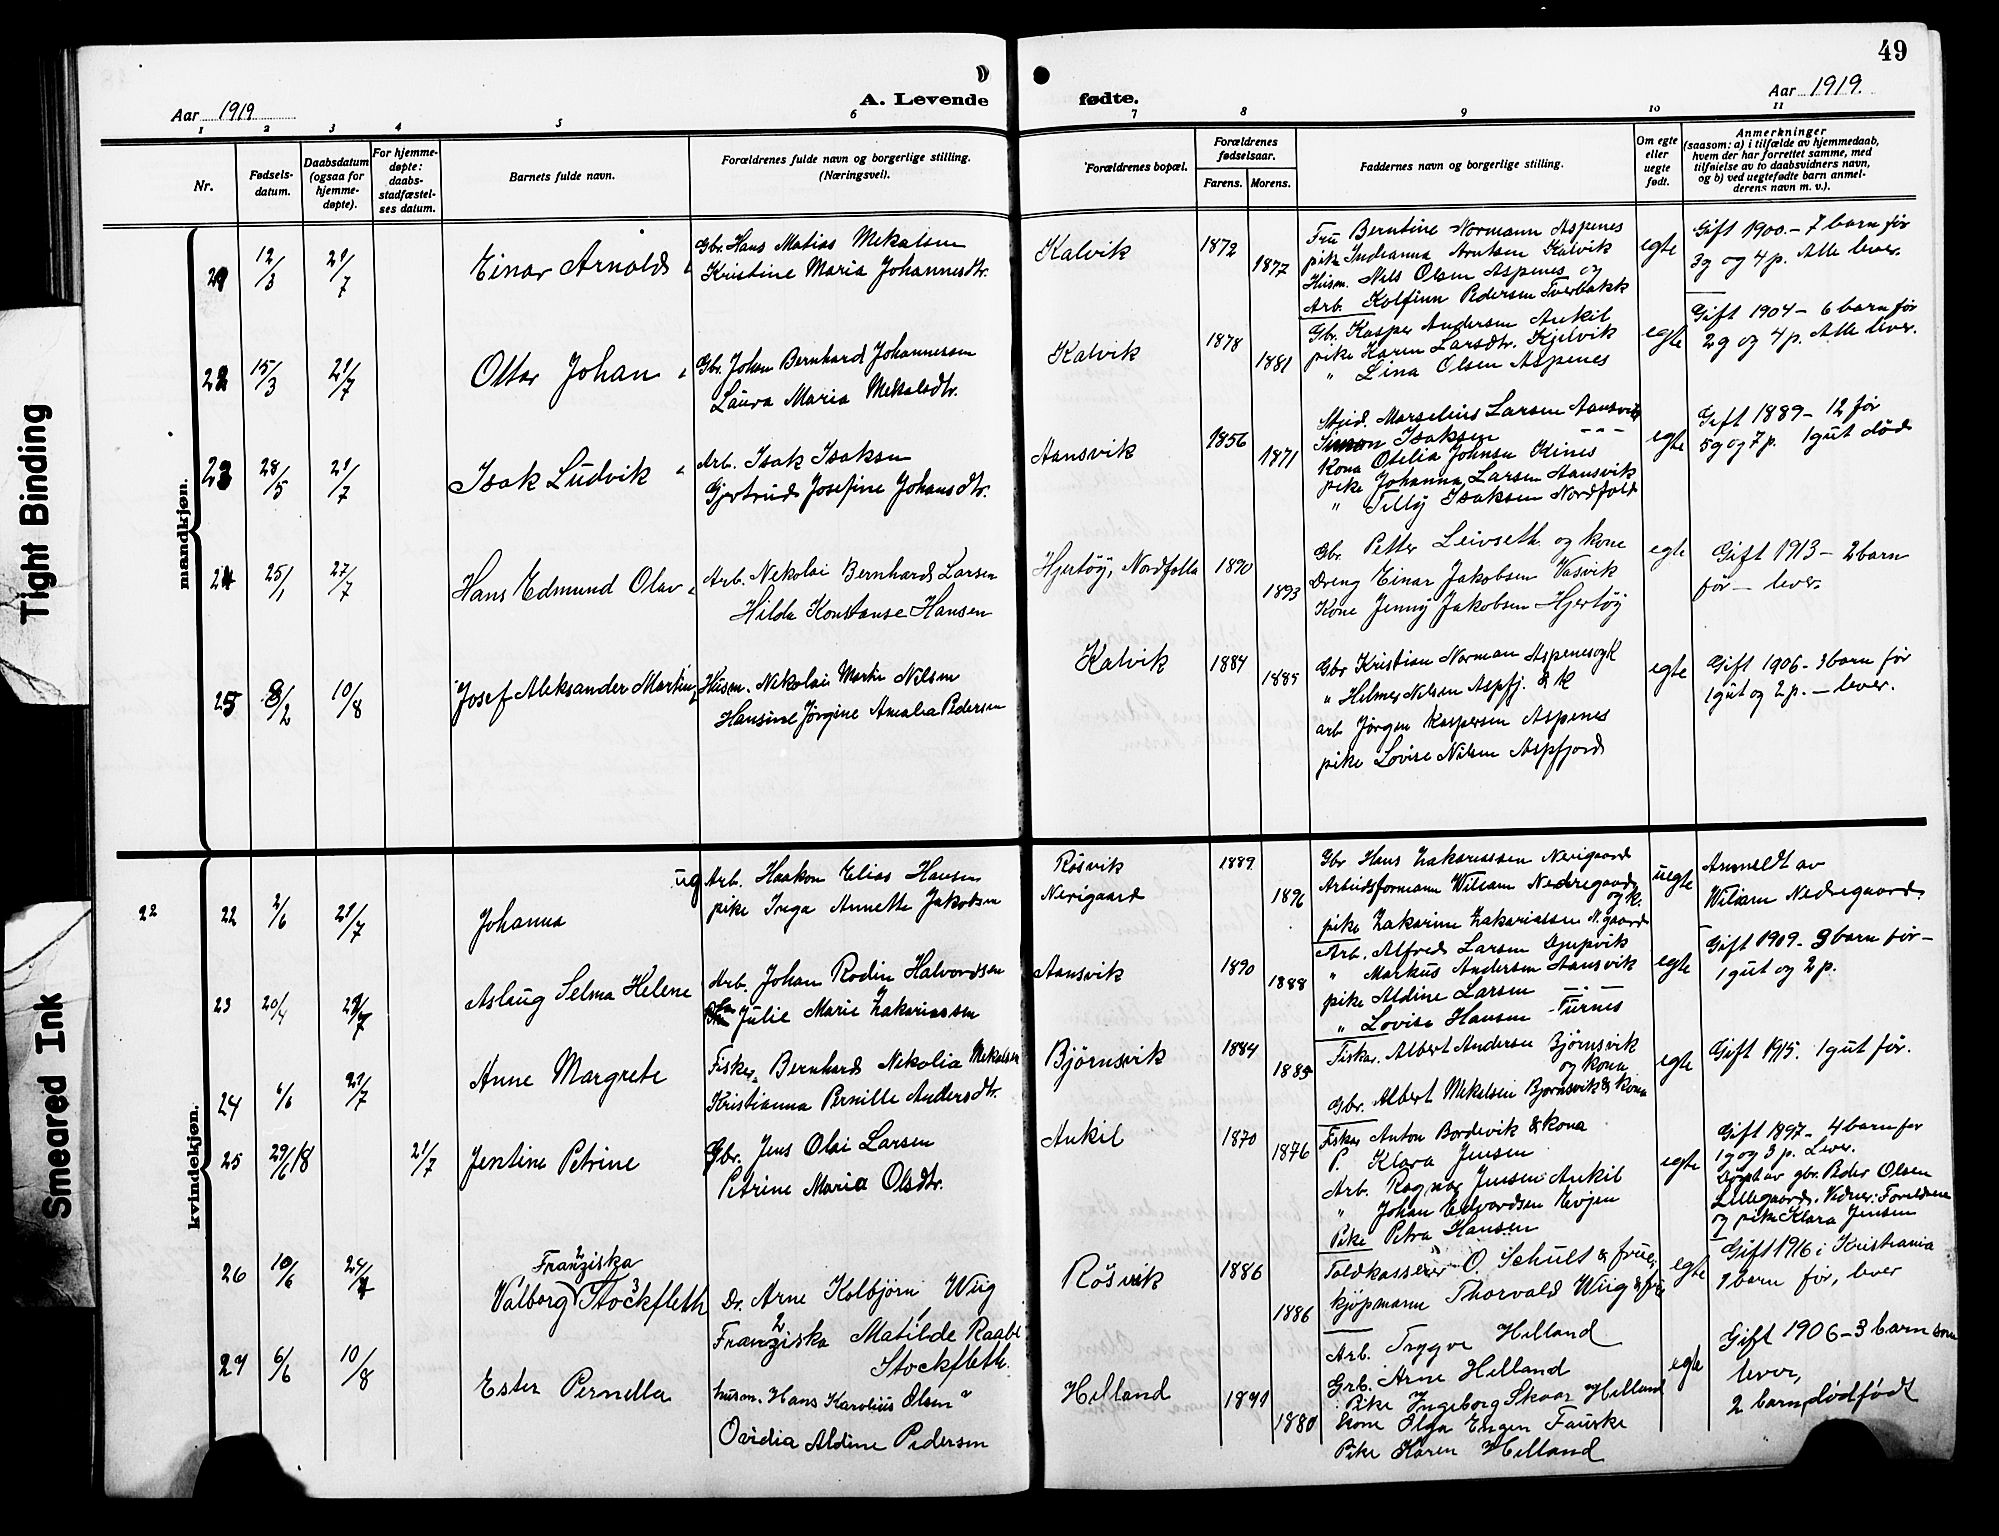 Tight Binding
Smeared Ink
49
Aar 1919
A. Levende
fødte.
Aar 1919.
1 2 3 4 5 6 7 8 9 10 11
Nr.
Fødsels-
datum.
Daabsdatum
(ogsaa for
hjemme-
døpte).
For hjemme-
døpte:
daabs-
stadfæstel-
ses datum.
Barnets fulde navn.
Forældrenes fulde navn og borgerlige stilling.
(Næringsvei).
Forældrenes bopæl.
Forældrenes
fødselsaar.
Farens. Morens.
Faddernes navn og borgerlige stilling.
Om egte
eller
uegte
født.
Anmerkninger
(saasom: a) i tilfælde av hjemmedaab,
hvem der har forrettet samme, med
tilføielse av to daabsvidners navn,
og b) ved uegtefødte barn anmel-
derens navn m. v.).
mandkjøn.
21 12/3 21/7 Einar Arnolds
Gbr. Hans Matias Mekalsen
Kristine Maria Johannesdtr.
Kalvik 1872 1877
Fru Berntine Normann Aspenes
pike Indianna Arntsen Kalvik
Husm. Nils Olsen Aspenes og
Arb. Kolfinn Pedersen Tverbakk
egte
Gift 1900 - 7 barn før
3g og 4 p. Alle lever.
22 15/3 21/7 Ottar Johan
Gbr. Johan Bernhard Johannessen
Laura Maria Mekalsdtr.
Kalvik 1878 1881
Gbr. Kasper Andersen Ankil
pike Karen Larsdtr. Kjelvik
" Lina Olsen Aspenes
egte
Gift 1904 - 6 barn før
2g og 4 p. Alle lever.
23 28/5 21/7 Isak Ludvik
Arb. Isak Isaksen
Gjertrud Josefine Johansdtr.
Aansvik 1856 1871
Marselius Larsen Aansvik
Simon Isaksen - - -
Kona Otelia Johnsen
pike Johanna Larsen Aansvik
" Tilly Isaksen Nordfold
egte
Gift 1889 - 12 før
5g og 7 p. 1 gut død
24 25/1 27/7 Hans Edmund Olav
Arb. Nekolai Bernhard Larsen
Hilda Konstanse Hansen
Hjertöy, Nordfolla 1890 1893
Gbr. Petter Leivseth og kone
Dreng Einar Jakobsen Vasvik
Kone Jenny Jakobsen Hjertöy
egte
Gift 1913 - 2 barn
før - lever.
25 8/2 10/8 Josef Aleksander Martin
Husm. Nikolai Martin Nilsen
Hansine Jörgine Amalia Pedersen
Kalvik 1884 1885
Gbr Kristian Norman Aspenes og K
" Helmer Nilsen Aspfj. & K
arb Jørgen Kaspersen Aspenes
pike Lovise Nilsen Aspfjord
egte
Gift 1906 - 3 barn før
1 gut og 2 p. - lever.
kvindekjøn.
22 22 2/6 21/7 Johanna
ug Arb. Haakon Elias Hansen
pike Inga Annette Jakobsen
Røsvik
Nerigaard 1889 1896
Gbr Hans Zakariassen Nerigaard
Arbeidsformann Wiliam Nedregaard
og k.
pike Zakarine Zakariassen N.gaard
uegte
Anmeldt av
Wiliam Nedregaard.
23 20/4 21/7 Aslaug Selma Helene
Arb. Johan Rodin Halvordsen
Julie Marie Zakariassen
Aansvik 1890 1888
Arb. Alfred Larsen Djupvik
" Markus Andersen Aansvik
pike Aldine Larsen - - -
" Lovise Hansen Furnes
egte
Gift 1909 - 3 barn før -
1 gut og 2 p.
24 6/6 21/7 Anne Margrete
Fisker Bernhard Nekolia Mekalsen
Kristianna Pernille Andersdtr.
Bjørnsvik 1884 1885
Fisker Albert Andersen Bjørnsvik
og kona
Gbr. Albert Mekelsen Bjørnsvik & kona
egte
Gift 1915. 1 gut før.
25 29/6 18 21/7 Jentine Petrine
Gbr. Jens Olai Larsen
Petrine Maria Olsdtr.
Ankil 1870 1876
Fisker Anton Bordevik & kona
P. Klara Jensen
Arb. Ragnar Jensen Ankil
" Johan Edvardsen Evjen
Pike Petra Hansen
egte
Gift 1897 - 4 barn før
1 g og 3 p. Lever.
Døpt av gbr. Peder Olsen
Lillegaard. Vidner: Foreldrene
og pike Klara Jensen
26 10/6 24/7
2
Franziska
Valborg Stockfleth 3
Dr. Arne Kolbjørn Wiig
2
Franziska Matilde Raabe
Stockfleth.
Røsvik 1886 1886
Toldkasserer O. Schult & frue,
kjøpmann Thorvald Wiig & fru
egte
Gift 1916 i Kristiania
1 barn før, lever
27 6/6 10/8 Ester Pernella
husm. Hans Karolius Olsen
Ovidia Aldine Pedersen
Helland 1880
Arb. Trygve Helland
Grb. Arne Helland
Pike Ingeborg Skaar Helland
kone Olga Engen Fauske
Pike Karen Helland
egte
Gift 1906 - 3 barn som
lever,
2 barn dødfødt